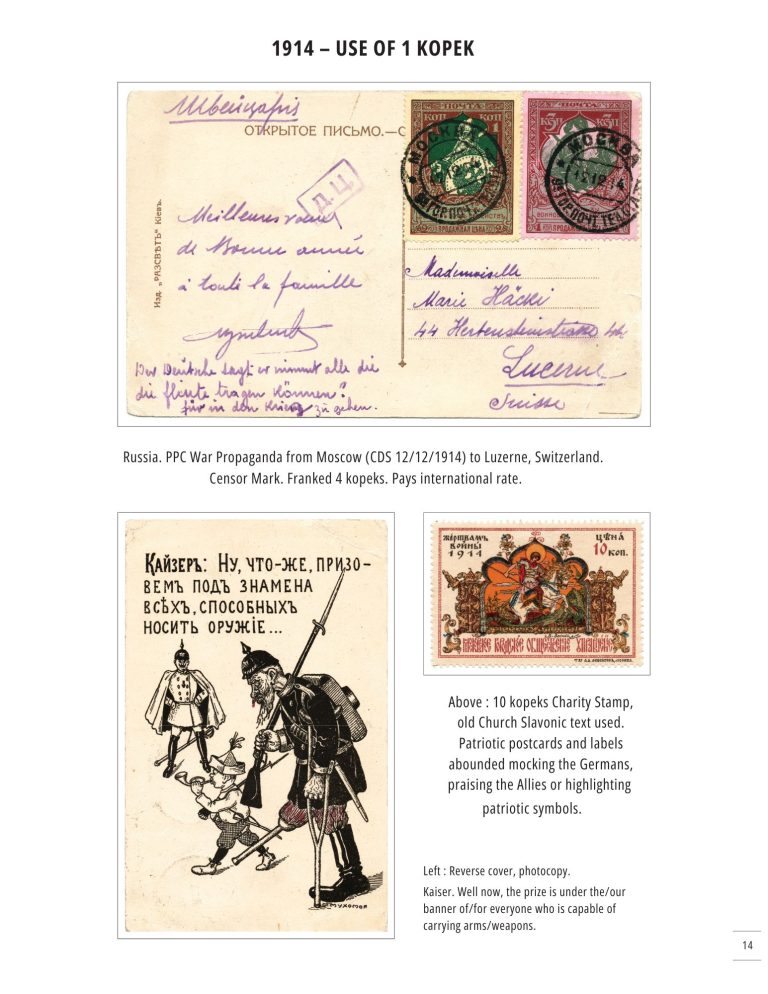 1914 – USE OF 1 KOPEK
Швейцарія
ОТКРЫТОЕ ПИСЬМО.—С
ПОЧТА
КОП 1 КОП 1
ПРОДАЖНАЯ ЦѢНА
МОСКВА
ПОЧТА
КОП 3 КОП 3
МОСКВА
12 12 14
Д.Ц.
Изд. „РАЗСВѢТЪ" Кіевъ.
Meilleures vœux
de Bonne année
à toute la famille
Der Deutsche sagt er nimmt alle die
die flinte tragen können?
für in den Krieg zu gehen.
Mademoiselle
Marie Häcki
44 Hertensteinstrasse 44
Lucerne
Suisse
Russia. PPC War Propaganda from Moscow (CDS 12/12/1914) to Luzerne, Switzerland.
Censor Mark. Franked 4 kopeks. Pays international rate.
КАЙЗЕРЪ: НУ, ЧТО-ЖЕ, ПРИЗО-
ВЕМЪ ПОДЪ ЗНАМЕНА
ВСѢХЪ, СПОСОБНЫХЪ
НОСИТЬ ОРУЖІЕ...
МУХОМОР
ЖЕРТВАМЪ
ВОЙНЫ
1914
ЦѢНА
10 КОП.
Above : 10 kopeks Charity Stamp,
old Church Slavonic text used.
Patriotic postcards and labels
abounded mocking the Germans,
praising the Allies or highlighting
patriotic symbols.
Left : Reverse cover, photocopy.
Kaiser. Well now, the prize is under the/our
banner of/for everyone who is capable of
carrying arms/weapons.
14